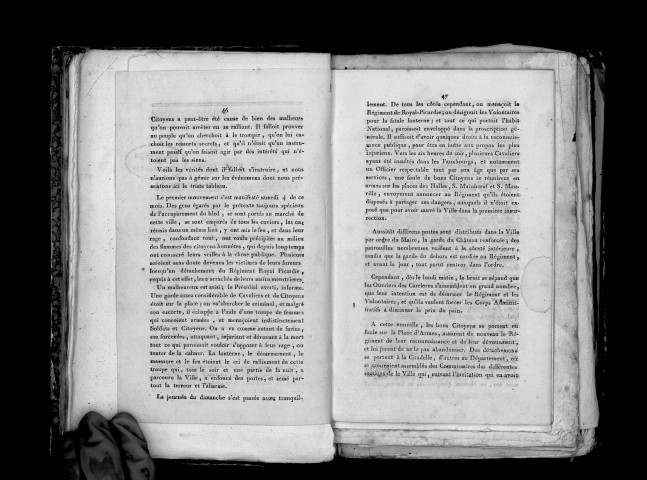 46
Citoyens a peut-être été cause de bien des malheurs
qu'on pouvoit arrêter en se ralliant. Il falloit prouver
au peuple qu'on cherchoit à le tromper, qu'on lui ca-
choit les ressorts secrets, et qu'il n'étoit qu'un instru-
ment passif qu'on faisoit agir par des intérêts qui n'é-
toient pas les siens.
Voilà les vérités dont il falloit s'instruire, et nous
n'aurions pas à gémir sur les événemens dont nous pré-
sentons ici le triste tableau.
Le premier mouvement s'est manifesté samedi 4 de ce
mois. Des gens égarés par le prétexte toujours spécieux
de l'accaparement du bled, se sont portés au marché de
cette ville, se sont emparés de tous les caviers, les ont
réunis dans un même lieu, y ont mis le feu, et dans leur
rage, confondant tout, ont voulu précipiter au milieu
des flammes des citoyens honnêtes, qui depuis long-temps
ont consacré leurs veilles à la chose publique. Plusieurs
auroient sans doute devenus les victimes de leurs fureurs
lorsqu'un détachement du Régiment Royal Picardie,
requis à cet effet, leur arracha de leurs mains meurtrières.
Un malheureux est saisi; le Présidial averti, informe.
Une garde assez considérable de Cavaliers et de Citoyens
étoit sur la place; on va chercher le criminel, et malgré
son escorte, il échappe à l'aide d'une troupe de femmes
qui couroient armées, et menaçoient indistinctement
Soldats et Citoyens. On a vu comme autant de furies,
ces forcenées, attaquant, injuriant et dévouant à la mort
tout ce qui paroissoit vouloir s'opposer à leur rage, ou
tenter de la calmer. La lanterne, le désarmement, le
massacre et le feu étoient le cri de ralliement de cette
troupe qui, tout le soir et une partie de la nuit, a
parcouru la Ville, a enfoncé des portes, et semé par-
tout la terreur et l'alarme.
La journée du dimanche s'est passée assez tranquil-
47
lement. De tous les côtés cependant, on menaçoit le
Régiment de Royal-Picardie; on désignoit les Volontaires
pour la fatale lanterne; et tout ce qui portoit l'habit
National, paroissoit enveloppé dans la proscription gé-
nérale. Il suffisoit d'avoir quelques droits à la reconnois-
sance publique, pour être en butte aux propos les plus
injurieux. Vers les six heures du soir, plusieurs Cavaliers
ayant été insultés dans les Fauxbourgs, et notamment
un Officier respectable tant par son âge que par ses
services, une foule de bons Citoyens se réunirent en
armes sur les places des Halles, S. Mainbœuf et S. Mau-
rille, envoyerent annoncer au Régiment qu'ils étoient
disposés à partager ses dangers, auxquels il n'étoit ex-
posé que pour avoir sauvé la Ville dans la premiere insur-
rection.
Aussitôt différens postes sont distribués dans la Ville
par ordre du Maire, la garde du Château renforcée; des
patrouilles nombreuses veillent à la sûreté intérieure,
tandis que la garde du dehors est confiée au Régiment,
et avant le jour, tout parut rentrer dans l'ordre.
Cependant, dès le lundi matin, le bruit se répand que
les Ouvriers des Carrieres s'assemblent en grand nombre,
que leur intention est de désarmer le Régiment et les
Volontaires, et qu'ils veulent forcer les Corps Adminis-
tratifs à diminuer le prix du pain.
A cette nouvelle, les bons Citoyens se portent en
foule sur la Place d'Armes, assurent de nouveau le Ré-
giment de leur reconnoissance et de leur dévouement,
et lui jurent de ne le pas abandonner. Des détachemens
se portent à la Citadelle, d'autres au Département, où
se trouvoient assemblés des Commissaires des différentes
sections de la Ville qui, suivant l'invitation qui en avoit